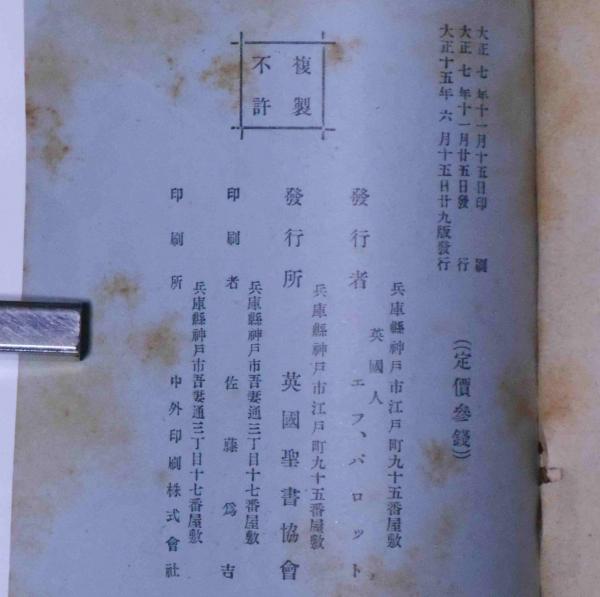 大正七年十一月十五日印刷
大正七年十一月廿五日發行
大正十五年六月十五日廿九版發行
(定價參錢)
複製
不許
兵庫縣神戸市江戸町九十五番屋敷
英國人
發行者 エフ、パロット
兵庫縣神戸市江戸町九十五番屋敷
發行所 英國聖書協會
兵庫縣神戸市吾妻通三丁目十七番屋敷
印刷者 佐藤爲吉
兵庫縣神戸市吾妻通三丁目十七番屋敷
印刷所 中外印刷株式會社